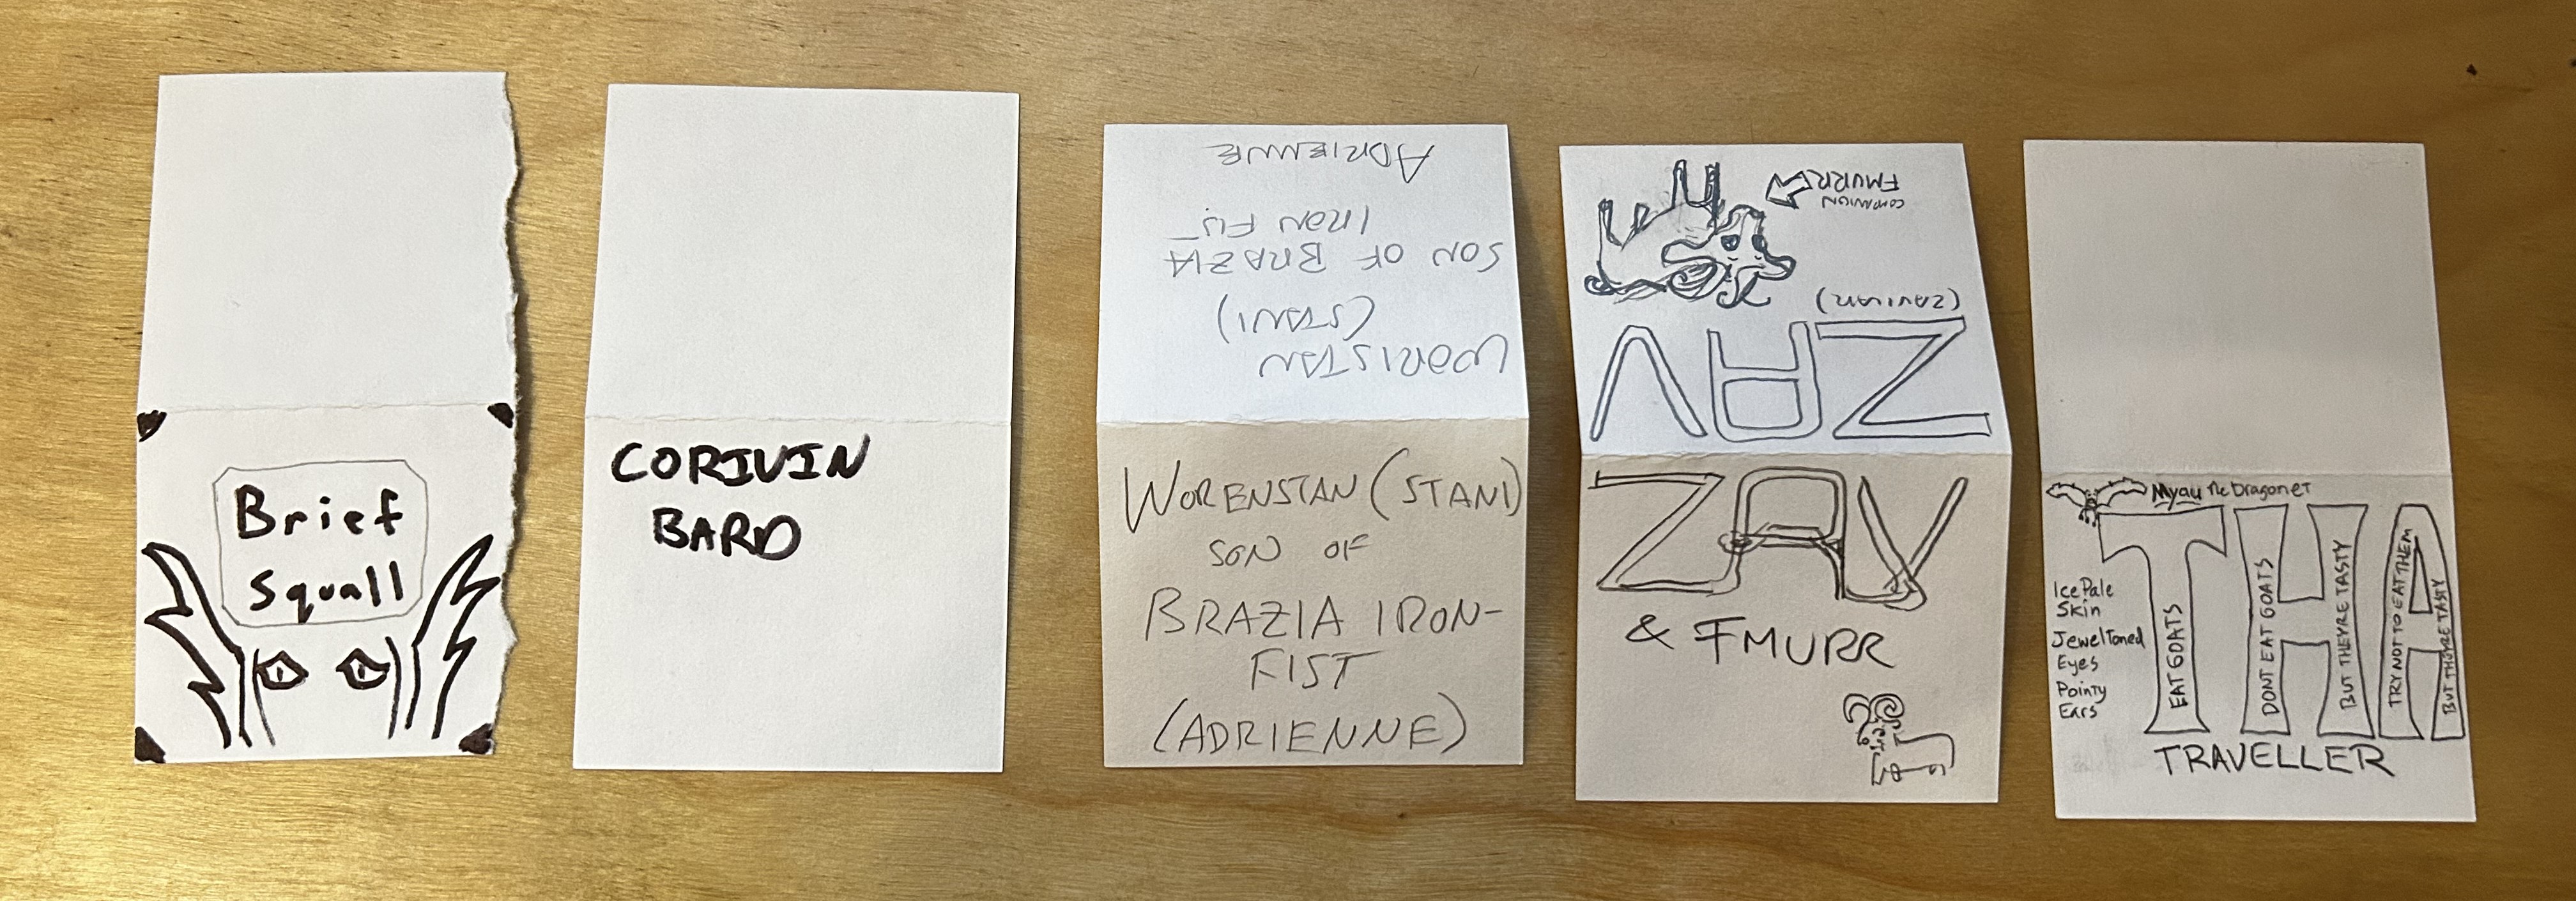 Brief
Squall
CORIVIN
BARD
ADRIENNE
IRON FIS
SON OF BRAZIA
(STANI)
WORISTAN
WORENSTAN (STANI)
SON OF
BRAZIA IRON-
FIST
(ADRIENNE)
COMPANION
FMURR
(ZAVINAR)
ZAV
ZAV
& FMURR
Myau The Dragonet
THA
EAT GOATS
DONT EAT GOATS
BUT THEYRE TASTY
TRY NOT TO EAT THEM
BUT THEYRE TASTY
Ice Pale
Skin
Jewel Toned
Eyes
Pointy
Ears
TRAVELLER